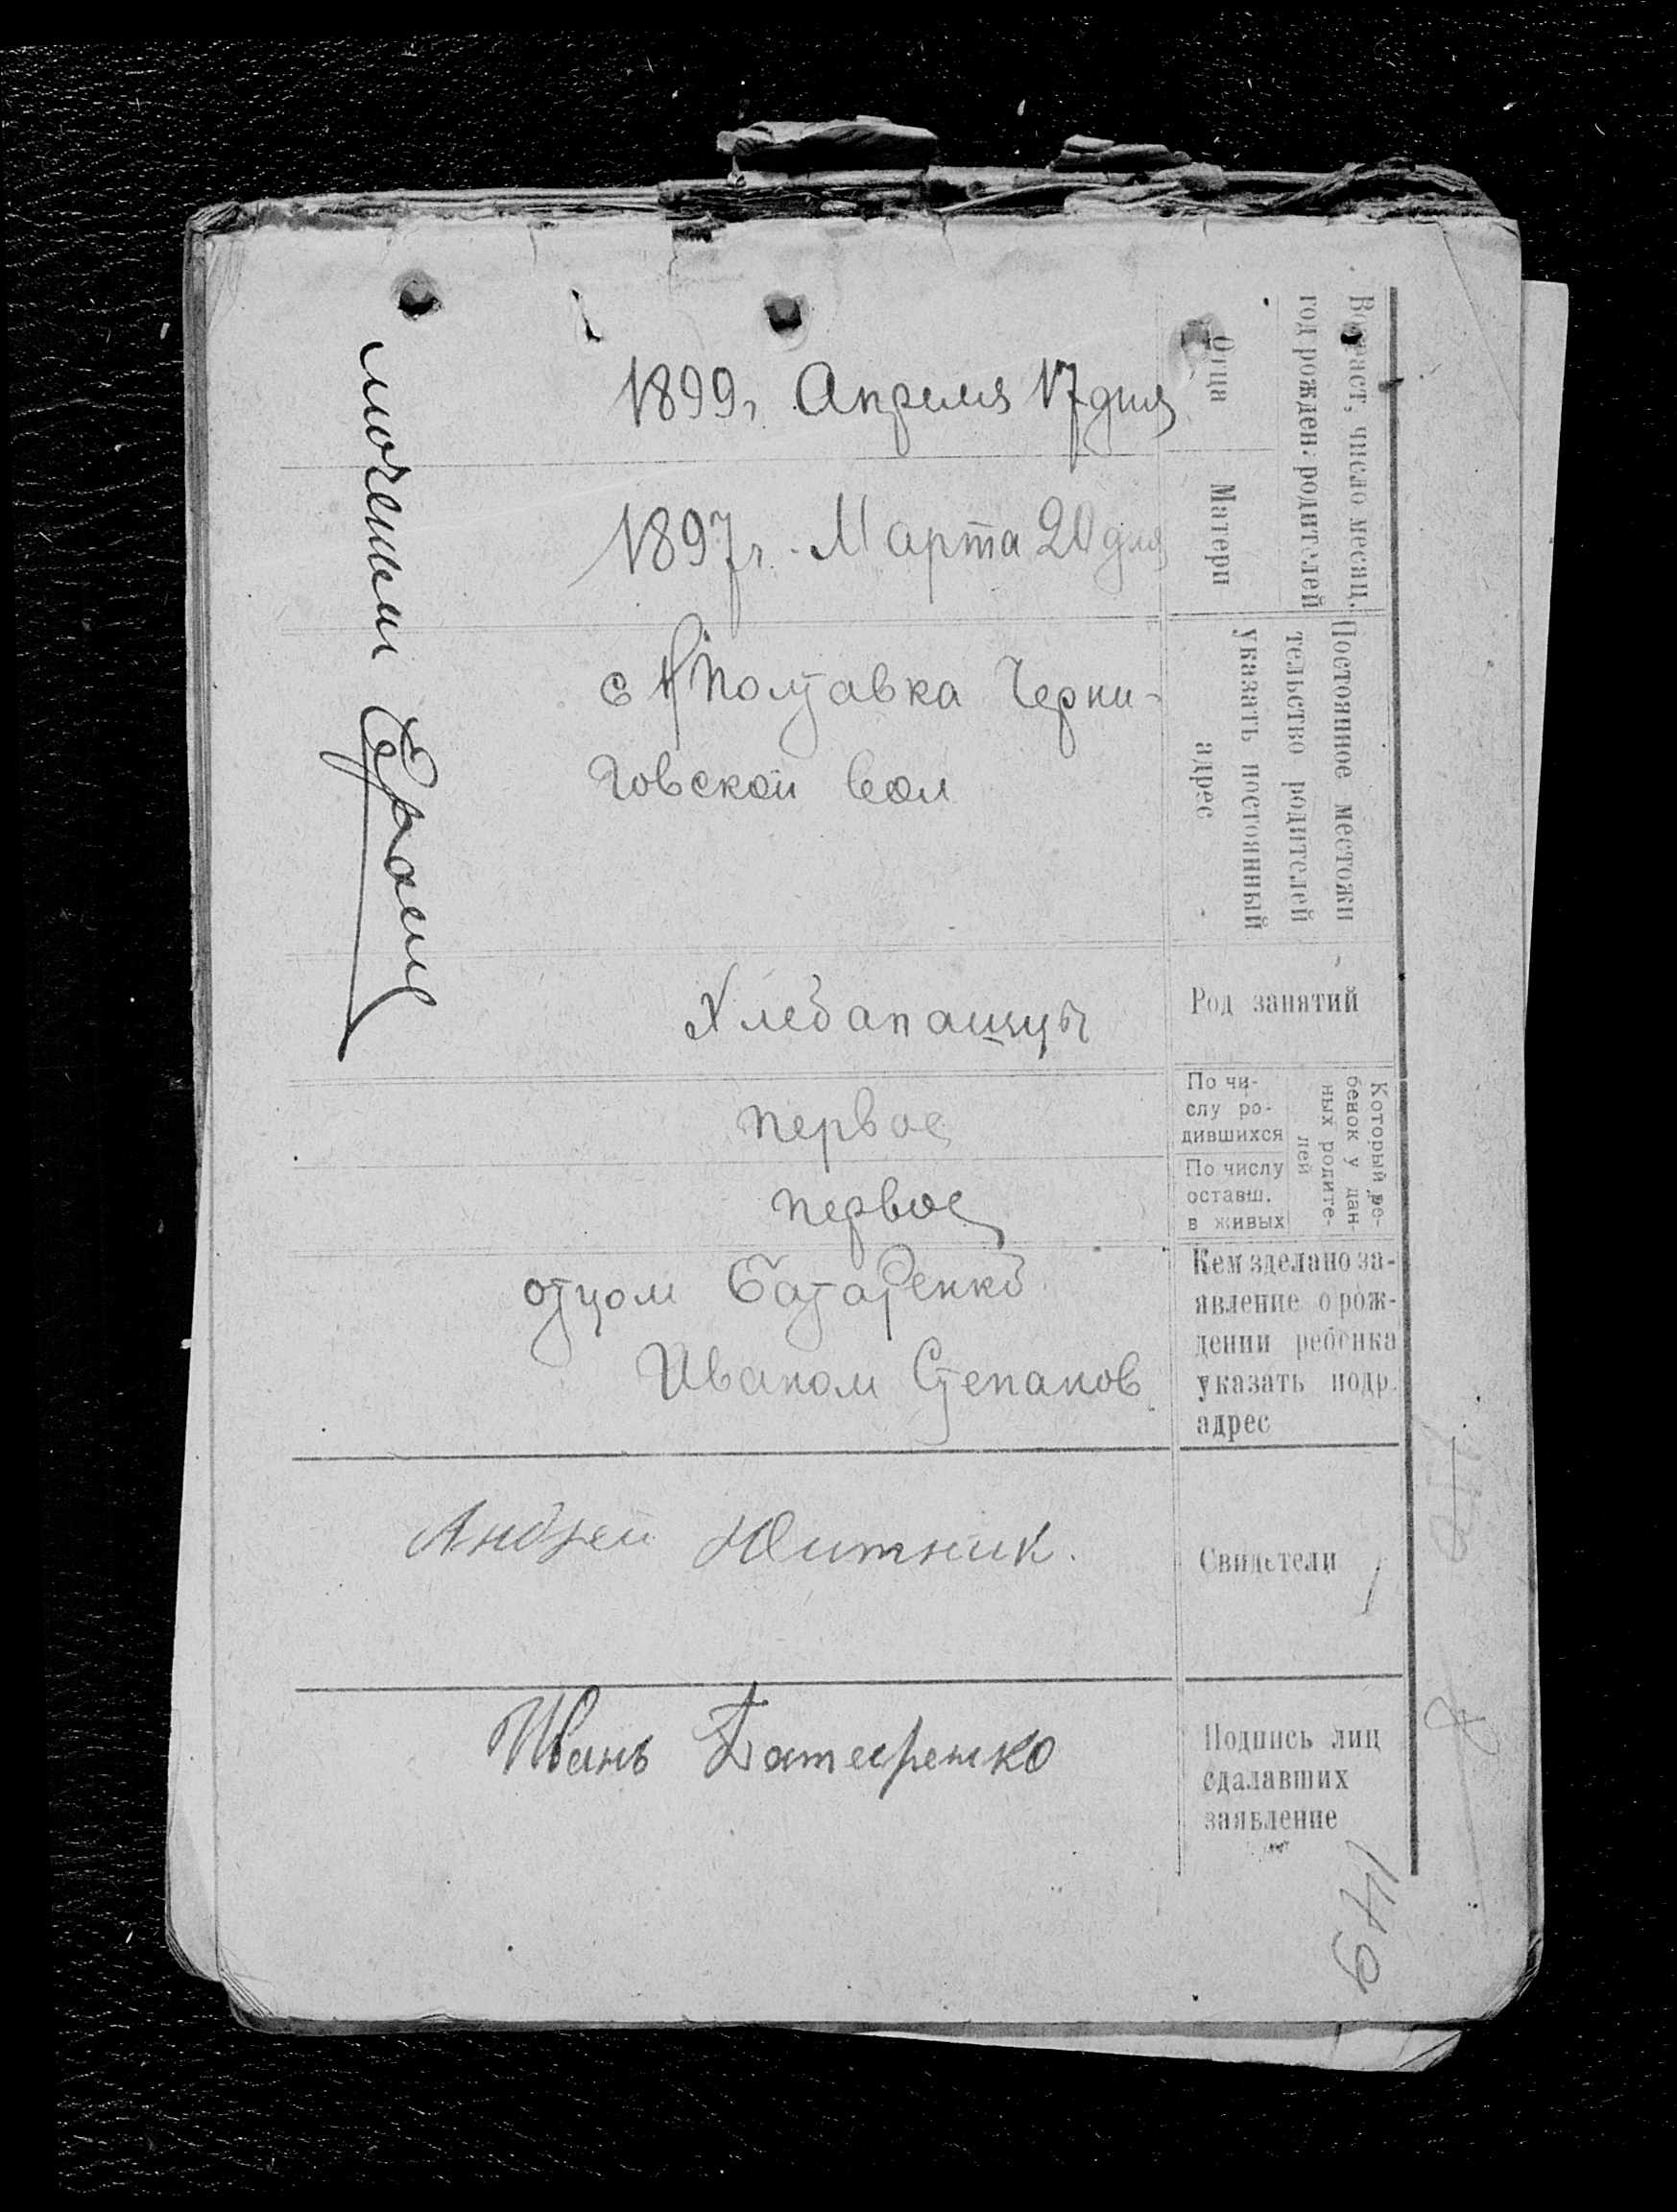 Возраст, число месяц.
год рожден. родителей
Отца
1899г Апреля 17 дня
Матери
1897г. Марта 20 дня
Постоянное местожи
тельство родителей
указать постоянный
адрес
с Н Полтавка Черни-
говской вол
Род занятий
Хлебапашцы
Который ре-
бенок у дан-
ных родите-
лей
По чи-
слу ро-
дившихся
первое
По числу
оставш.
в живых
первое
Кем зделано за-
явление о рож-
дении ребенка
указать подр.
адрес
отцом Батаренко
Иваном Степанов
Свидетели
Андрей Житник.
Подпись лиц
сдалавших
заявление
Иванъ Батаренко
149